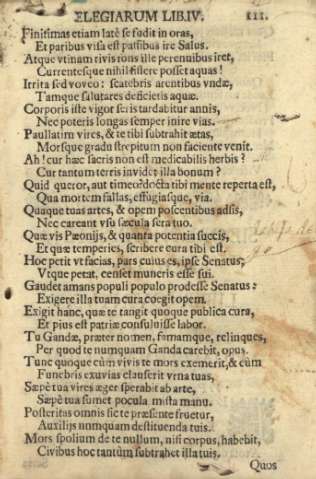 ELEGIARUM LIB.IV. 111.
Finitimas etiam latè se fudit in oras,
Et paribus visa est passibus ire Salus.
Atque vtinam rivis fons ille perennibus iret,
Currentesque nihil sistere posset aquas!
Irrita sed voveo: scatebris arentibus vndæ,
Tamque salutares deficietis aquæ.
Corporis iste vigor seris tardabitur annis,
Nec poteris longas semper inire vias.
Paullatim vires, & te tibi subtrahit ætas,
Morsque gradu strepitum non faciente venit.
Ah! cur hæc sacris non est medicabilis herbis?
Cur tantum terris invidet illa bonum?
Quid queror, aut timeo? docta tibi mente reperta est,
Qua mortem fallas, effugiasque, via.
Quaque tuas artes, & opem poscentibus adsis,
Nec careant vsu sæcula sera tuo.
Quævis Pæonijs, & quanta potentia succis,
Et quæ temperies, scribere cura tibi est.
Hoc petit vt facias, pars cuius es, ipse Senatus;
Vtque petat, censet muneris esse sui.
Gaudet amans populi populo prodesse Senatus:
Exigere illa tuam cura coëgit opem.
Exigit hanc, quæ te tangit quoque publica cura,
Et pius est patriæ consuluisse labor.
Tu Gandæ, præter nomen, famamque, relinques,
Per quod te numquam Ganda carebit, opus.
Tunc quoque cùm vivis te mors exemerit, & cùm
Funebris exuvias clauserit vrna tuas,
Sæpè tua vires æger sperabit ab arte,
Sæpè tua sumet pocula mista manu.
Posteritas omnis sic te præsente fruetur,
Auxilijs numquam destituenda tuis.
Mors spolium de te nullum, nisi corpus, habebit,
Civibus hoc tantùm subtrahet illa tuis.
Quos